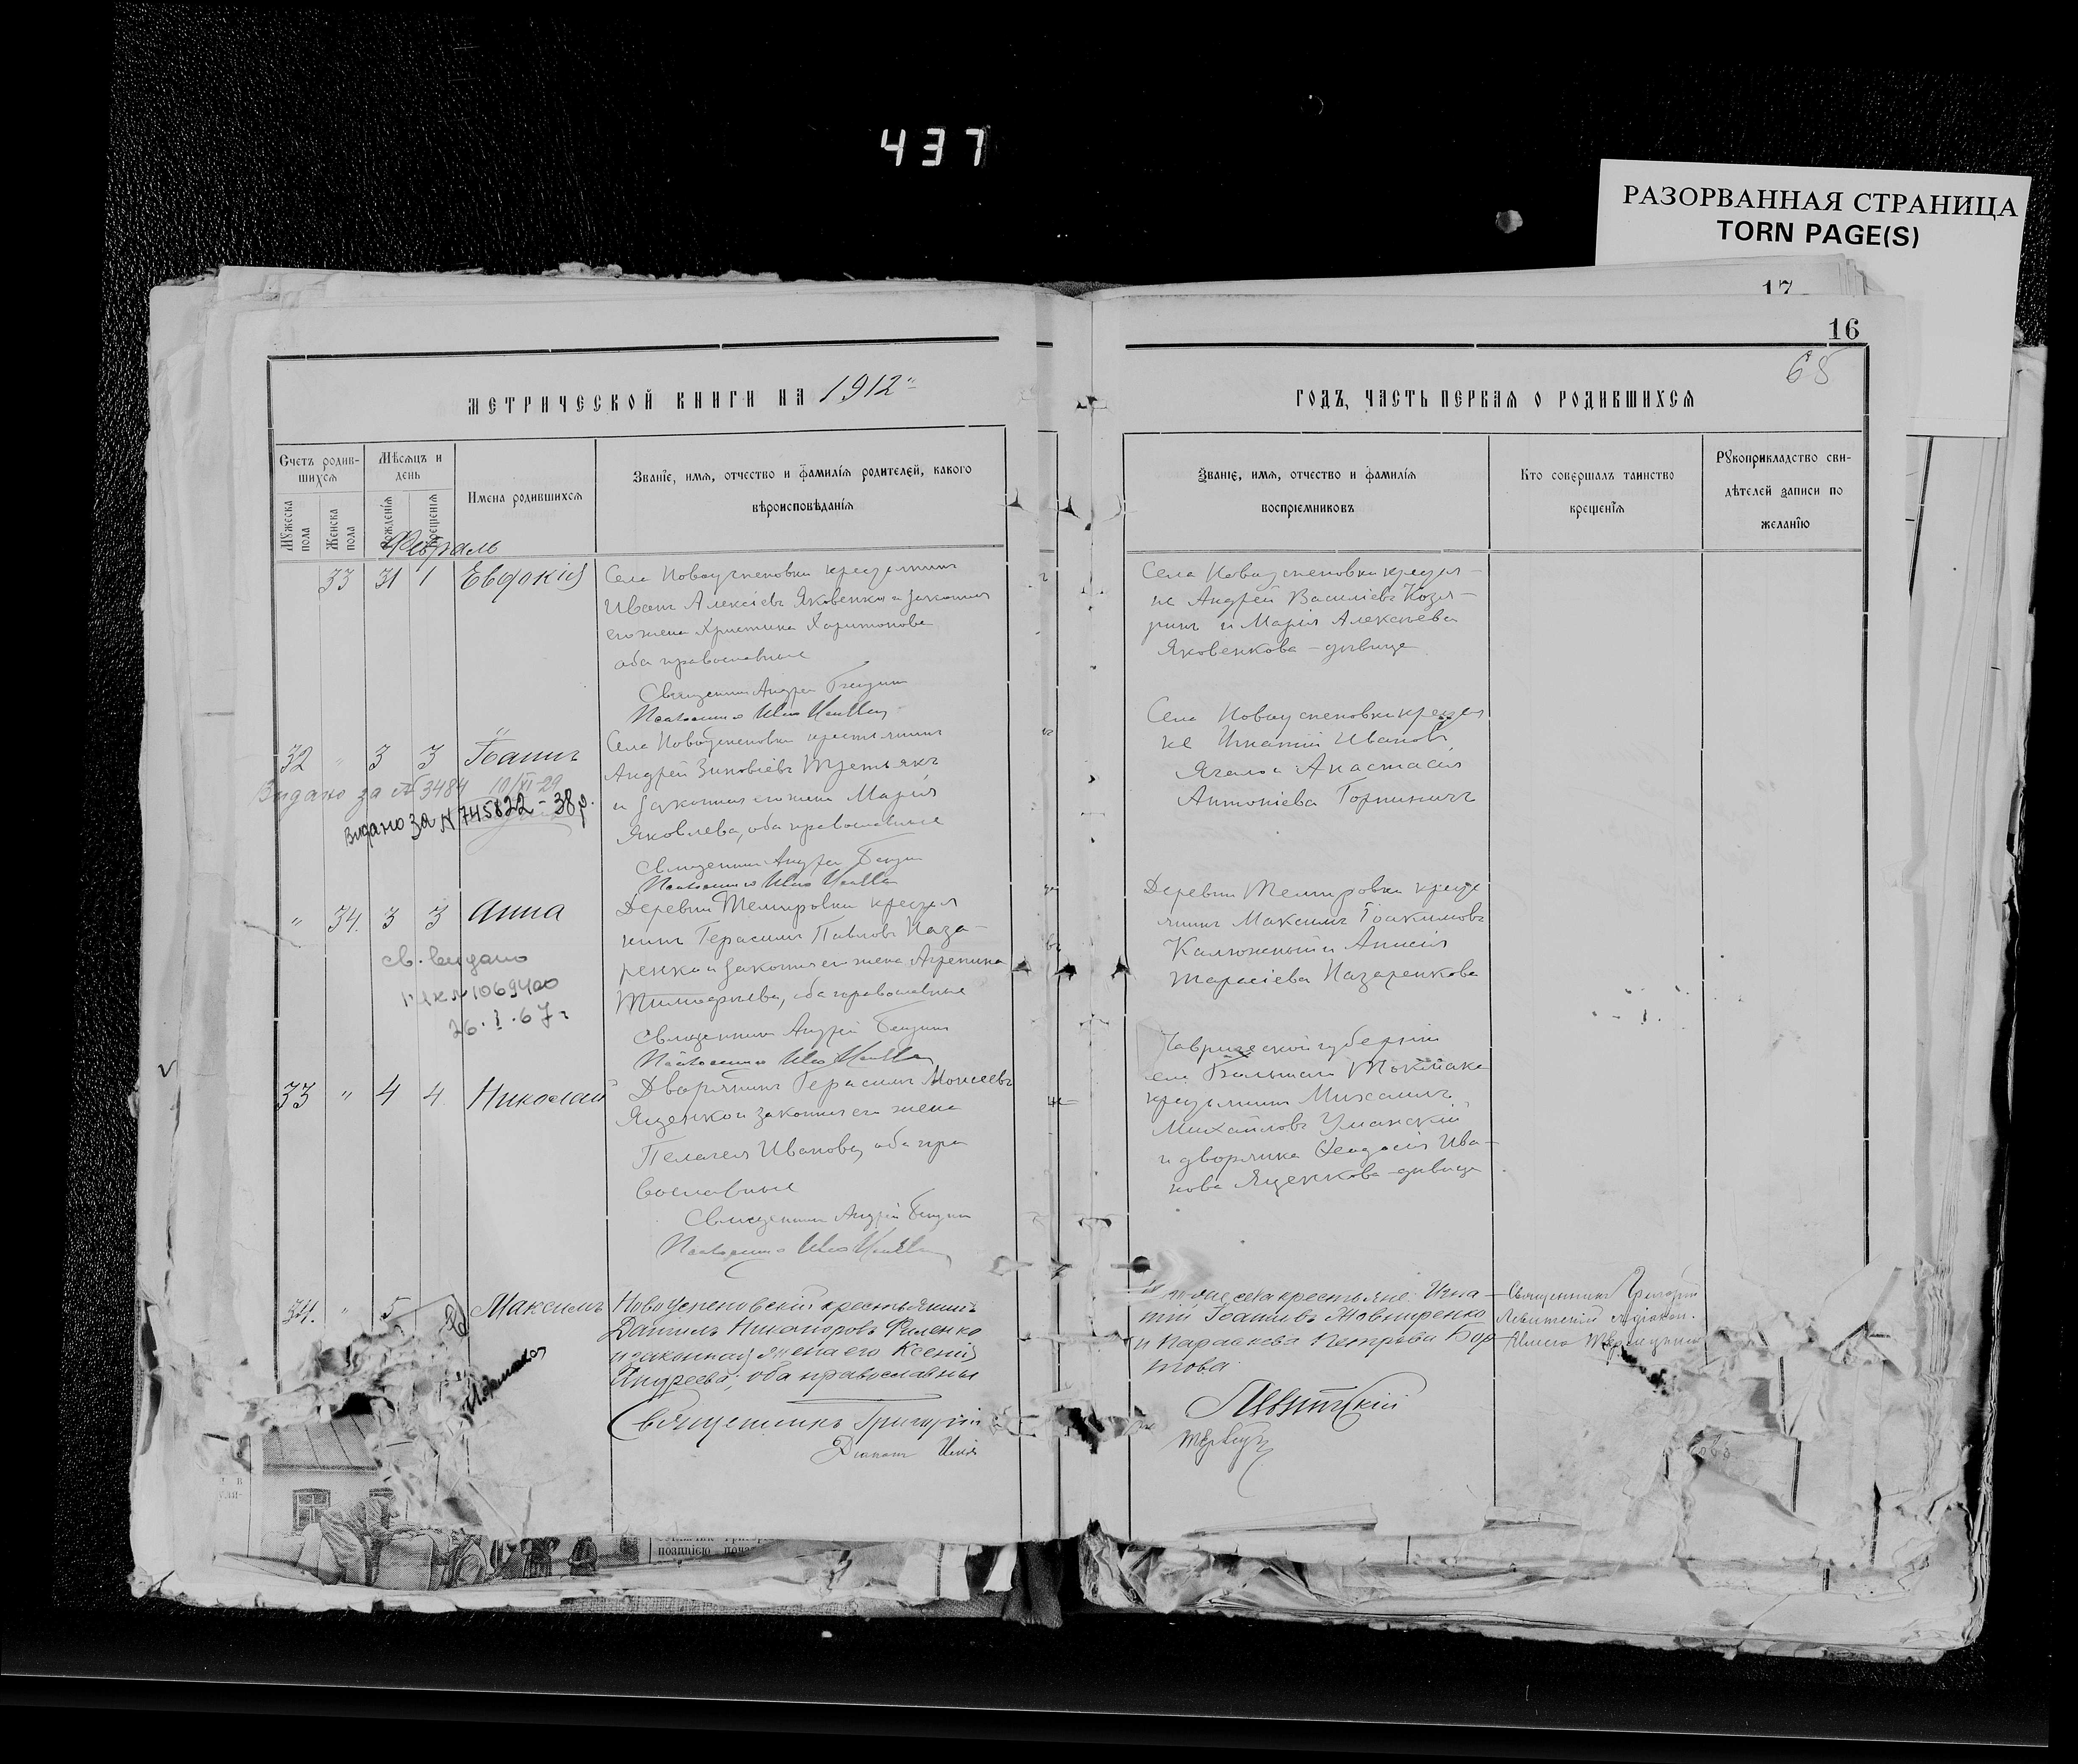 437
РАЗОРВАННАЯ СТРАНИЦА
TORN PAGE(S)
17
16
68
МЕТРИЧЕСКОЙ КНИГИ НА 1912
ГОДЪ, ЧАСТЬ ПЕРВАЯ О РОДИВШИХСЯ
Счетъ родив-
шихся
Мужеска пола
Женска пола
Мѣсяцъ и
день
рожденія
крещенія
Имена родившихся
Званіе, имя, отчество и фамилія родителей, какого
вѣроисповѣданія
Званіе, имя, отчество и фамилія
воспріемниковъ
Кто совершалъ таинство
крещенія
Рукоприкладство сви-
дѣтелей записи по
желанію
Февраль
33 31 1 Евдокія
Села Новоуспеновки крестьянинъ
Иванъ Алексіевъ Яковенко и законная
его жена Христина Харитонова
оба православные
Священникъ Андрей
Села Новоуспеновки крестья-
не Андрей Василіевъ Козя-
ринъ и Марія Алексѣева
Яковенкова - дѣвица
32 " 3 3 Іоаннъ
Видано за № 3484 10/VI-29
Видано за № 745822 - 38 р.
Села Новоуспеновки крестьянинъ
Андрей Зиновіевъ Третьякъ
и законная его жена Марія
Яковлева, оба православные
Священникъ Андрей
Села Новоуспеновки крестья
не Игнатій Ивановъ
Ягало и Анастасія
Антоніева Горпиничъ
" 34. 3 3 Анна
св. видано
№ 1069400
26.I.67 г
Деревни Темировки крестья
нинъ Герасимъ Павловъ Наза-
ренко и законная его жена Агрепина
Тимофеева, оба православные
Священникъ Андрей
Деревни Темировки кресть
янинъ Максимъ Іоакимовъ
Калюжный и Анисія
Тарасіева Назаренкова
33 " 4 4 Николай
Дворянинъ Герасимъ Моисеевъ
Яценко и законная его жена
Пелагея Иванова, оба пра
вославные
Священникъ Андрей
Таврической губерніи
села Большаго Токмака
крестьянинъ Михаилъ
Михайловъ Уманскій
и дворянка Феодосія Ива-
нова Яценкова - дѣвица
34. " 5 Максимъ
Новоуспеновскій крестьянинъ
Даніилъ Никаноровъ Филенко
и законная жена его Ксенія
Андреева, оба православны
Священникъ Григорій
Діаконъ Илія
того же села крестьяне: Игна-
тій Іоанновъ Жовниренко
и Параскева Петрова Бор
това
Левитскій
Священникъ Григорій
Левитскій и діакон.
Илія